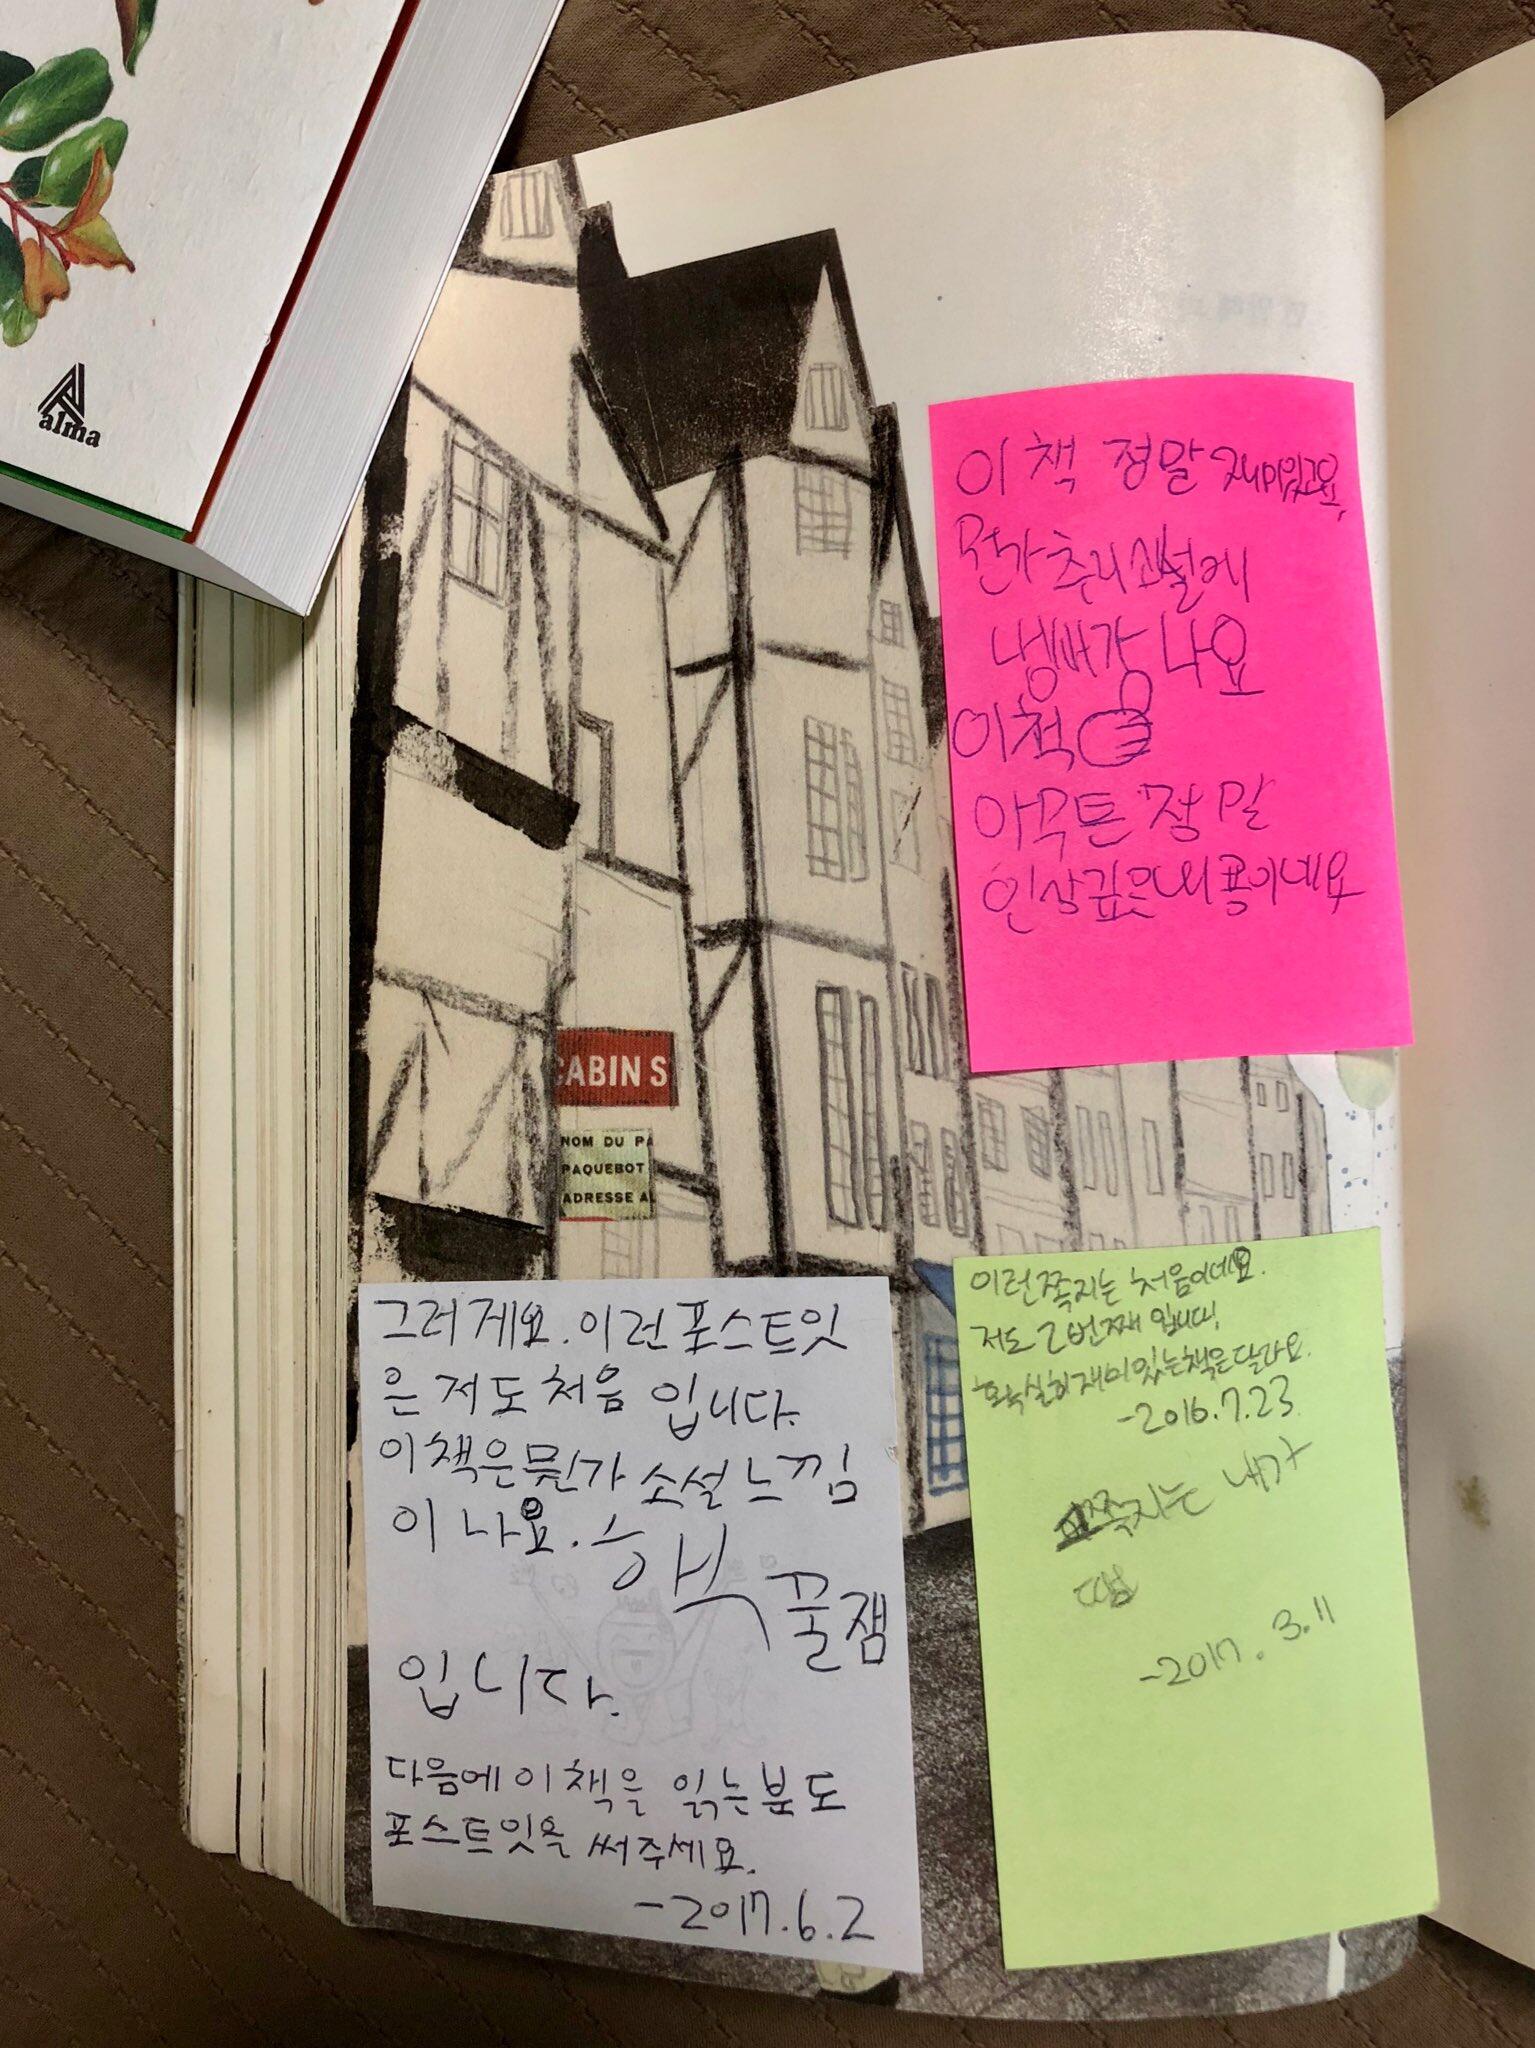 alma
이 책 정말 재미있고요,
뭔가 추리소설에
냄새가 나요
이 책
아무튼 정말
인상깊은 내용이네요
CABIN S
NOM DU PA
PAQUEBOT
ADRESSE A
이런 쪽지는 처음이네요.
저도 2번째 입니다!
확실히 재미있는 책은 달라요.
-2016.7.23
쪽지는 내가
-2017.3.11
그러게요. 이런 포스트잇
은 저도 처음 입니다.
이 책은 뭔가 소설 느낌
이 나요. 핵 꿀잼
입니다.
다음에 이 책을 읽는 분도
포스트잇을 써주세요.
-2017.6.2